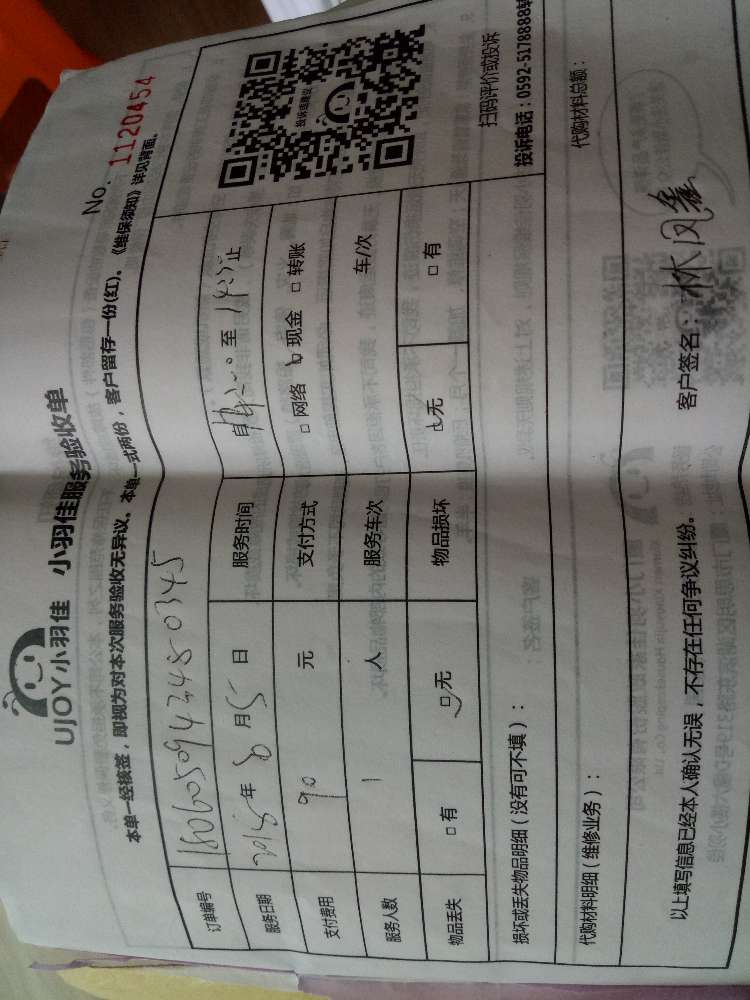 No. 1120454
UJOY小羽佳 小羽佳服务验收单
本单一经核签，即视为对本次服务验收无异议。本单一式两份，客户留存一份(红)。《维保须知》详见背面。
订单编号 1806050942480345
服务日期 2018年6月5日 服务时间 自 至 止
支付费用 90 元 支付方式 □网络 □现金 □转账
服务人数 1 人 服务车次 车/次
物品丢失 □有 □无 物品损坏 □无 □有
投诉或建议
扫码评价或投诉
投诉电话：0592-5178888转
损坏或丢失物品明细（没有可不填）：
代购材料明细（维修业务）： 代购材料总额：
以上填写信息已经本人确认无误，不存在任何争议纠纷。 客户签名：林凤